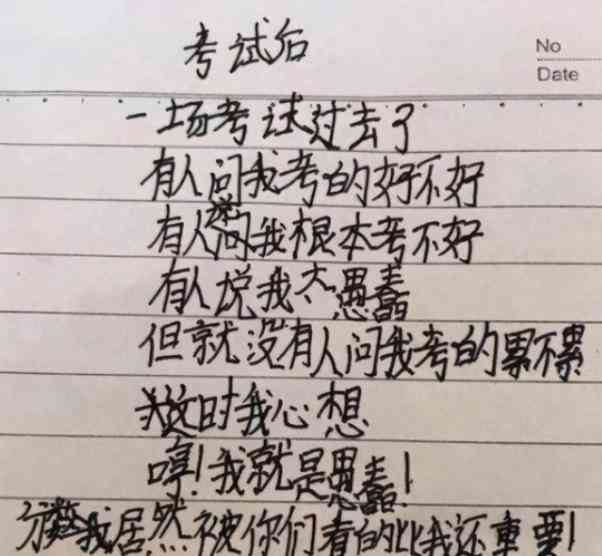 考试后
No
Date
一场考试过去了
有人问我考的好不好
有人问我根本考不好
有人说我太愚蠢
但就没有人问我考的累不累
这时我心想
哼!我就是愚蠢!
分数居然被你们看的比我还重要!